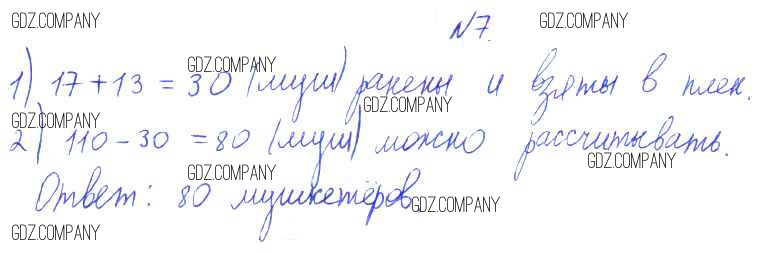 GDZ.COMPANY GDZ.COMPANY
N7.
GDZ.COMPANY
1) 17 + 13 = 30 (муш) ранены и взяты в плен.
GDZ.COMPANY
GDZ.COMPANY
2) 110 - 30 = 80 (муш) можно рассчитывать.
GDZ.COMPANY
GDZ.COMPANY
Ответ: 80 мушкетёров
GDZ.COMPANY
GDZ.COMPANY